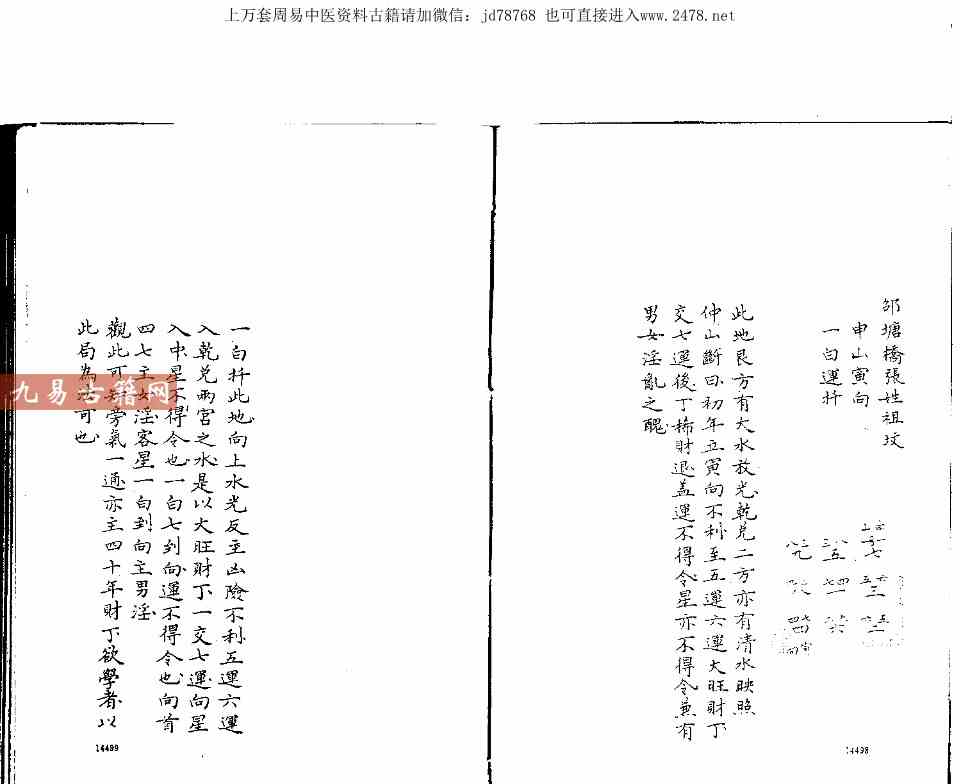 上万套周易中医资料古籍请加微信：jd78768 也可直接进入www.2478.net
邹塘橋張姓祖坟
申山寅向
一白運扦
此地艮方有大水放光乾兑二方亦有清水映照
仲山斷曰初年立寅向不利至五運六運大旺財丁
交七運後丁稀財退盖運不得令星亦不得令兼有
男女淫亂之醜
14498
一白扦此地向上水光反主凶險不利五運六運
入乾兑兩宮之水是以大旺財丁一交七運向星
入中星不得令也一白七到向運不得令也向首
四七主女淫客星一白到向主男淫
觀此可旁氣一通亦主四十年財丁欲學者以
此局為可也
14499
九易古籍网